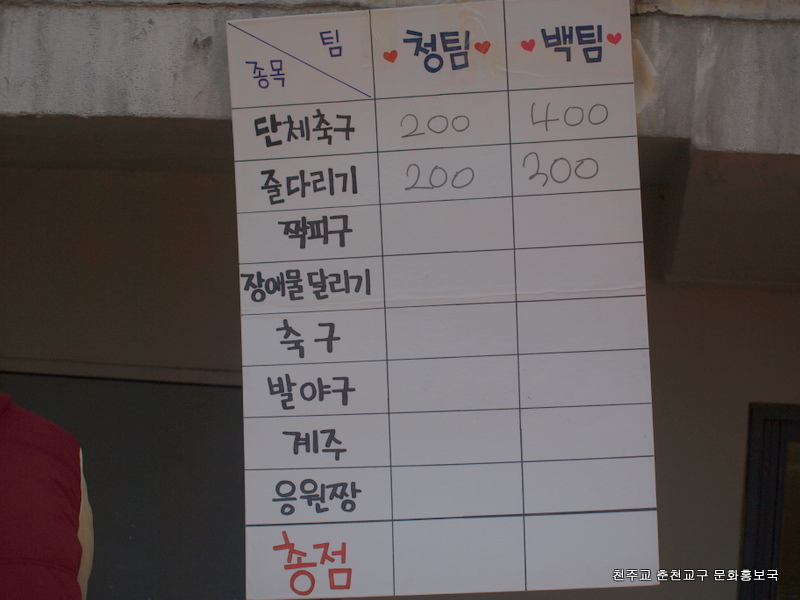 팀
종목
♥청팀♥ ♥백팀♥
단체축구 200 400
줄다리기 200 300
짝피구
장애물달리기
축구
발야구
계주
응원짱
총점
천주교 춘천교구 문화홍보국